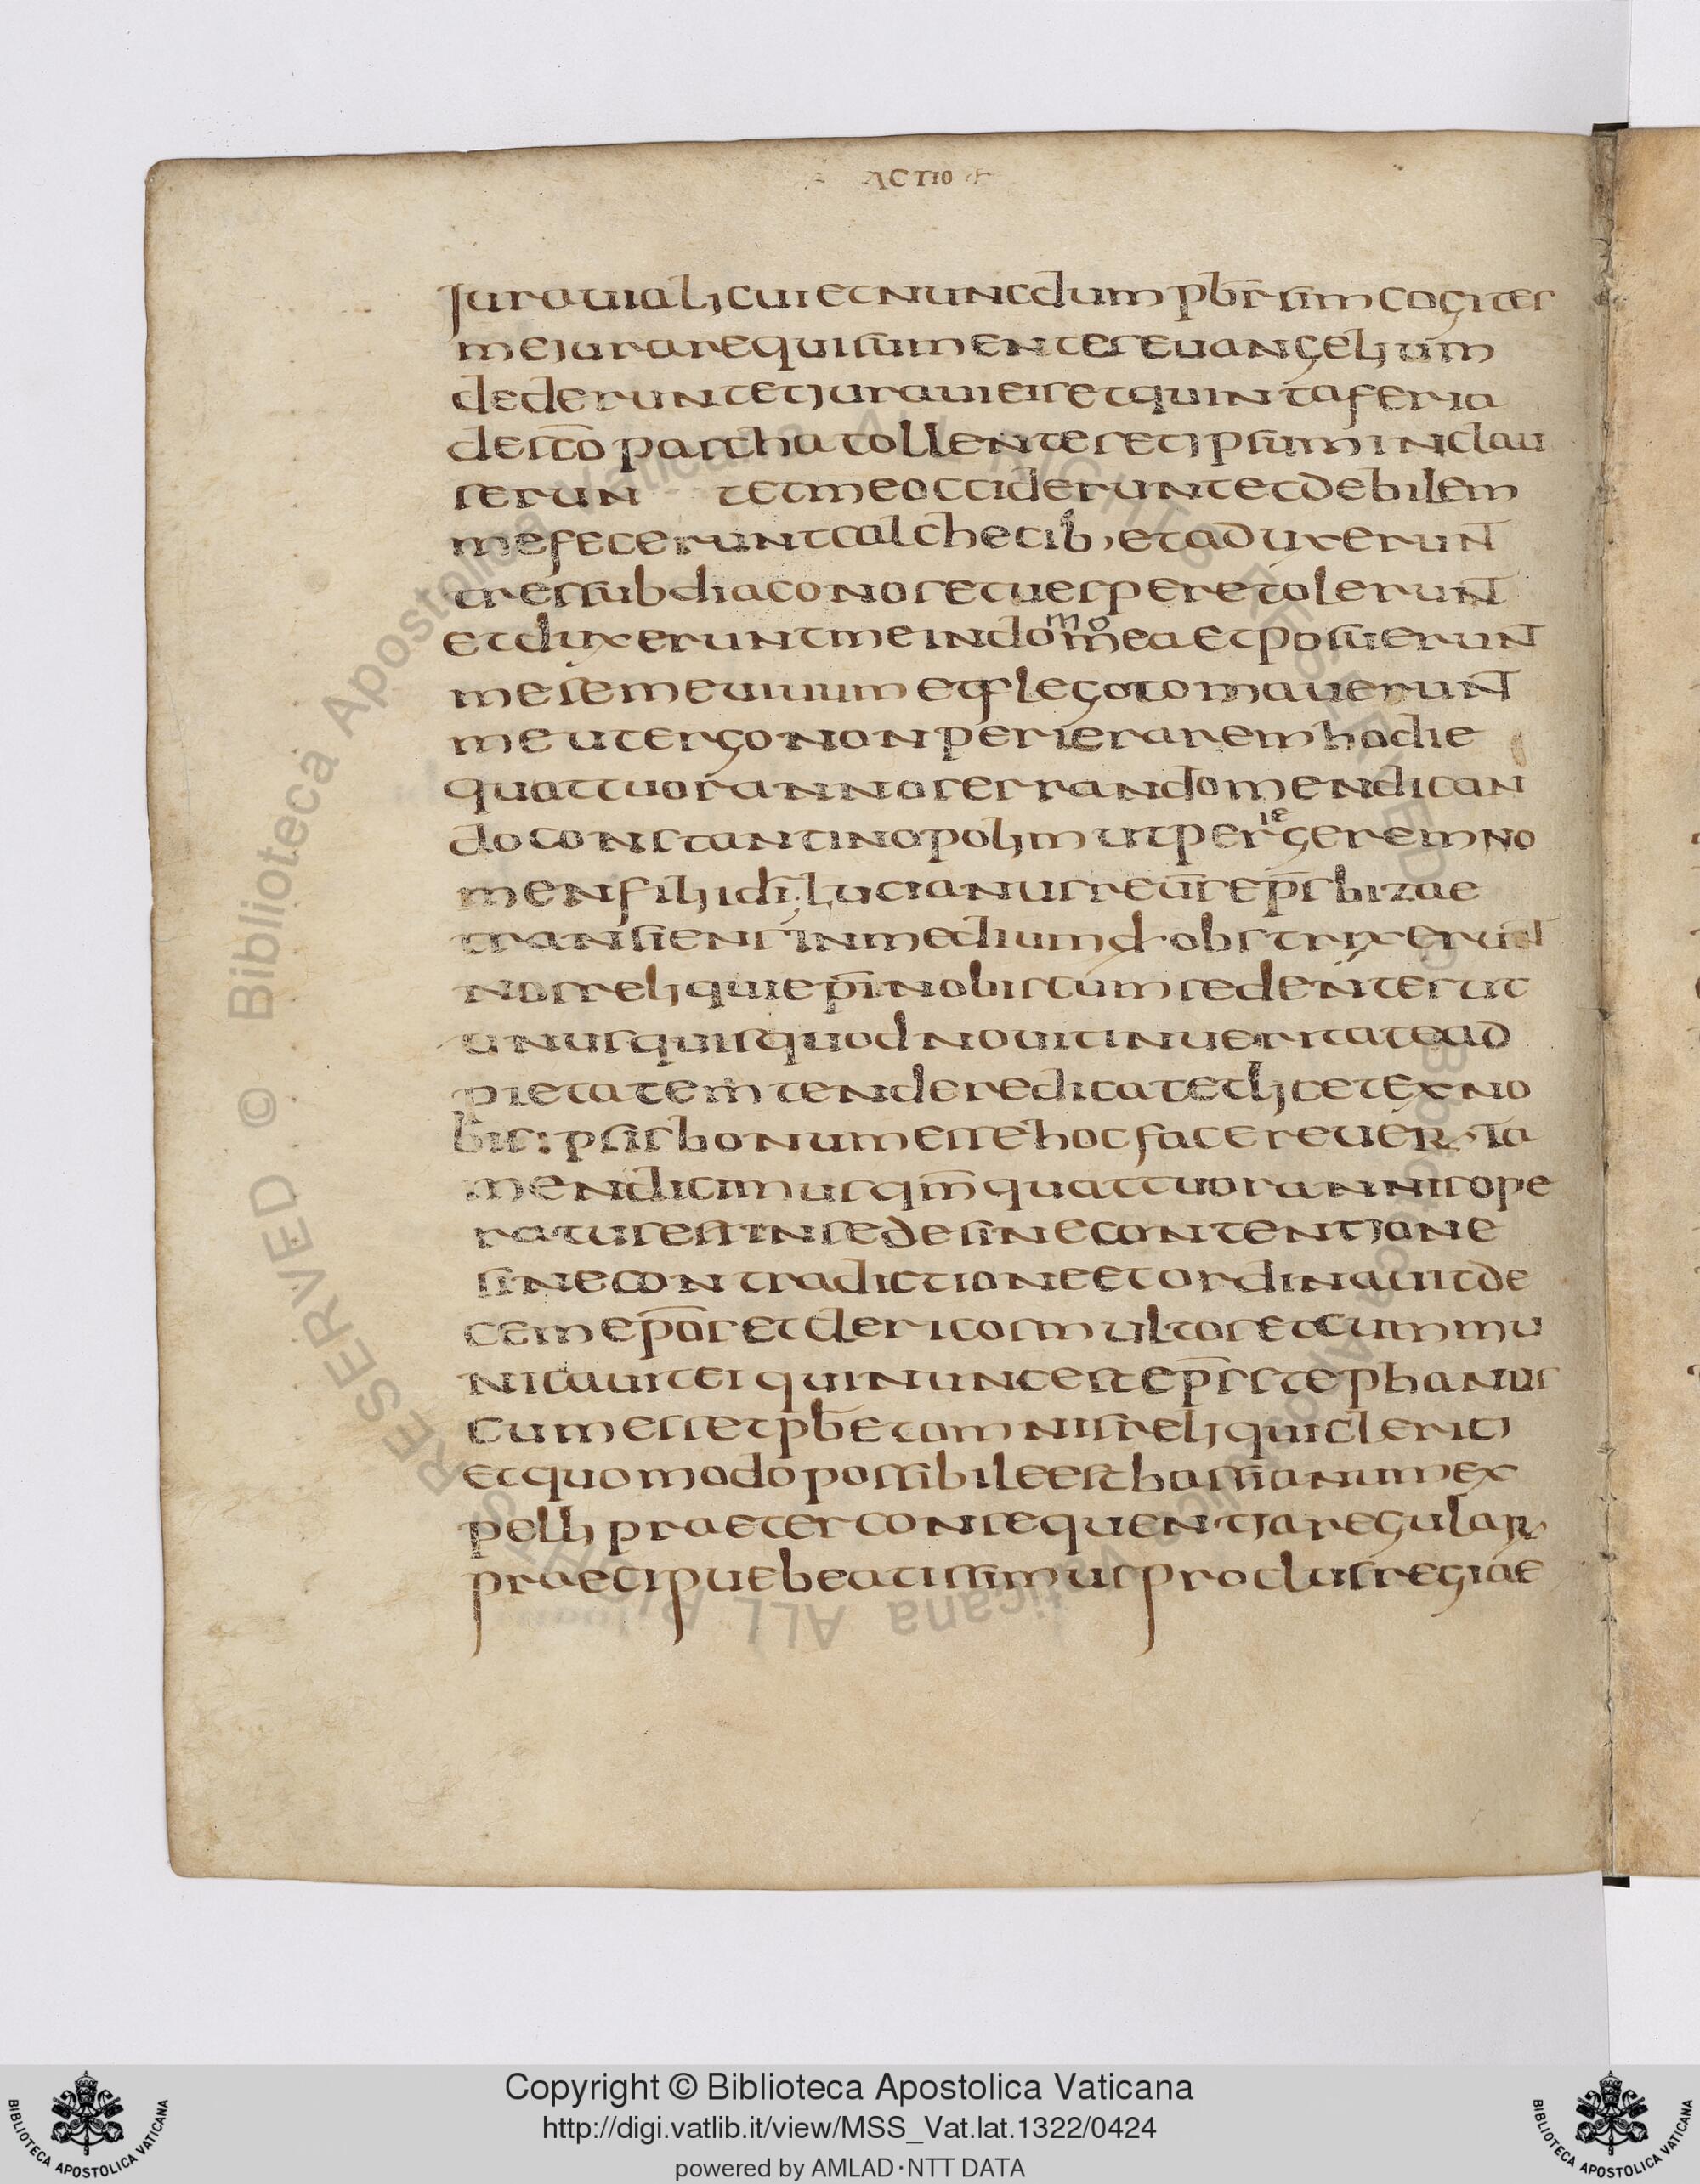 ACTIO
iuraui alicui et nunc dum pbr̄ sim cogites
me iurare qui sumentes euangelium
dederunt et iuraui eis et quinta feria
de sc̄o pascha tollentes et ipsum inclau
serun t et me occiderunt et debilem
me fecerunt calchecib, et aduxerun̄
tres subdiaconos et uespere tolerun̄
et duxerunt me in domo mea et posuerun̄
me semeuiuum et flegotomauerun̄
me ut ergo non perierarem hodie
quattuor annos errando mendican
do constantinopolim ut pergerem no
men filii dī; lucianus reūs ep̄s bizae
transiens in medium d obstrixerun̄
nos reliqui ep̄i nobiscum sedentes ut
unusquisque quod nouit in ueritate ad
pietatem tendere dicat et licet ex no
bis: psis bonum esse hoc facere uer ta
men dicimus qm̄ quattuor annis ope
ratus est in sede sine contentione
sine contradictione et ordinauit de
cem ep̄os et clericos multos et cummu
nicauit ei qui nunc est ep̄s stephanus
cum esset pb̄ et omnis reliqui clerici
et quomodo possibile est bassianum ex
pelli praeter consequentia regular
praecipue beatissimus proclus regiae
Copyright © Biblioteca Apostolica Vaticana
http://digi.vatlib.it/view/MSS_Vat.lat.1322/0424
powered by AMLAD·NTT DATA
BIBLIOTECA APOSTOLICA VATICANA
BIBLIOTECA APOSTOLICA VATICANA